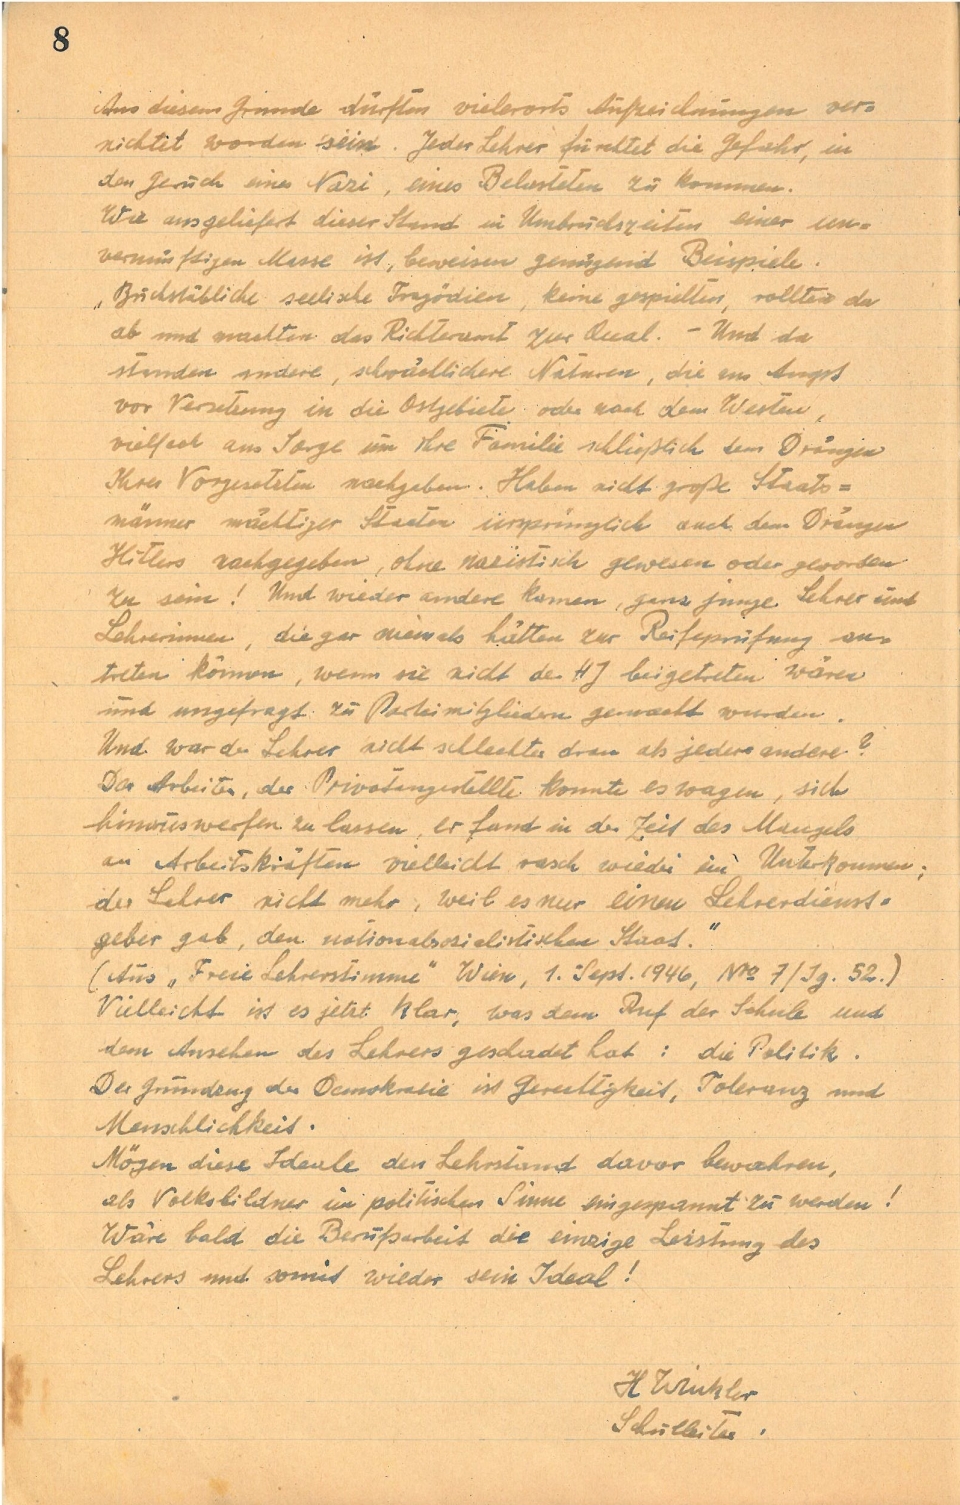 8
Aus diesem Grunde dürften vielerorts Aufzeichnungen ver=
nichtet worden sein. Jeder Lehrer fürchtet die Gefahr, in
den Geruch eines Nazi, eines Belasteten zu kommen.
Wie ausgeliefert dieser Stand in Umbruchszeiten einer un=
vernünftigen Masse ist, beweisen genügend Beispiele.
„Buchstäbliche seelische Tragödien, keine gespielten, rollten da
ab und machten das Richteramt zur Qual. – Und da
standen andere, schwächlichere Naturen, die aus Angst
vor Versetzung in die Ostgebiete oder nach dem Westen,
vielfach aus Sorge um ihre Familie schließlich dem Drängen
Ihres Vorgesetzten nachgeben. Haben nicht große Staats=
männer mächtiger Staaten ursprünglich auch dem Drängen
Hitlers nachgegeben, ohne nazistisch gewesen oder geworden
zu sein! Und wieder andere kamen, ganz junge Lehrer und
Lehrerinnen, die gar niemals hätten zur Reifeprüfung an=
treten können, wenn sie nicht der HJ beigetreten wären
und ungefragt zu Parteimitgliedern gemacht wurden.
Und war der Lehrer nicht schlechter dran als jeder andere?
Der Arbeiter, der Privatangestellte konnte es wagen, sich
hinauswerfen zu lassen, er fand in der Zeit des Mangels
an Arbeitskräften vielleicht rasch wieder ein Unterkommen;
der Lehrer nicht mehr, weil es nur einen Lehrerdienst=
geber gab, den nationalsozialistischen Staat."
(Aus „Freie Lehrerstimme" Wien, 1. Sept. 1946, Nro 7/Jg. 52.)
Vielleicht ist es jetzt klar, was dem Ruf der Schule und
dem Ansehen des Lehrers geschadet hat: die Politik.
Der Grundzug der Demokratie ist Gerechtigkeit, Toleranz und
Menschlichkeit.
Mögen diese Ideale den Lehrstand davor bewahren,
als Volksbildner im politischen Sinne eingespannt zu werden!
Wäre bald die Berufsarbeit die einzige Leistung des
Lehrers und somit wieder sein Ideal!
H Winkler
Schulleiter.